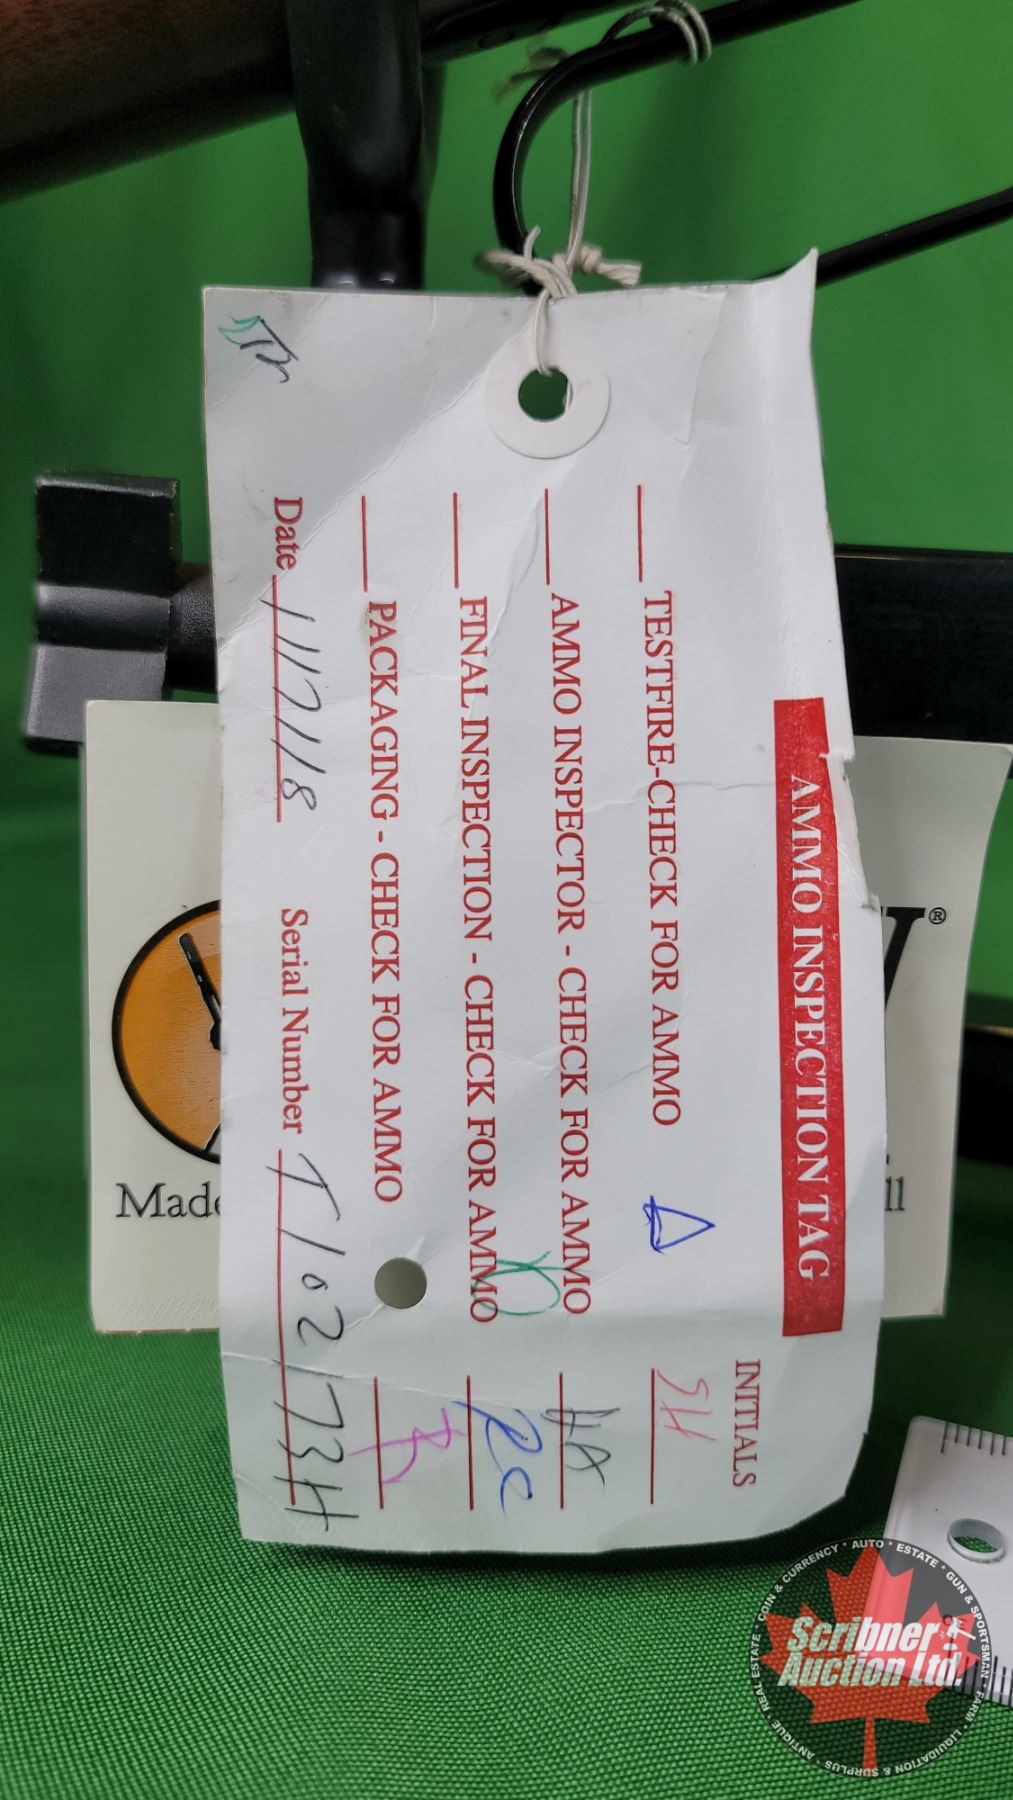 AMMO INSPECTION TAG
INITIALS
TESTFIRE-CHECK FOR AMMO SH
AMMO INSPECTOR - CHECK FOR AMMO
FINAL INSPECTION - CHECK FOR AMMO RC
PACKAGING - CHECK FOR AMMO
Date 11/7/18 Serial Number T102173H
®
Made
ill
Scribner
Auction Ltd.
COIN & CURRENCY · AUTO · ESTATE · GUN & SPORTSMAN · FARM · LIQUIDATION & SURPLUS · ANTIQUE · REAL ESTATE ·